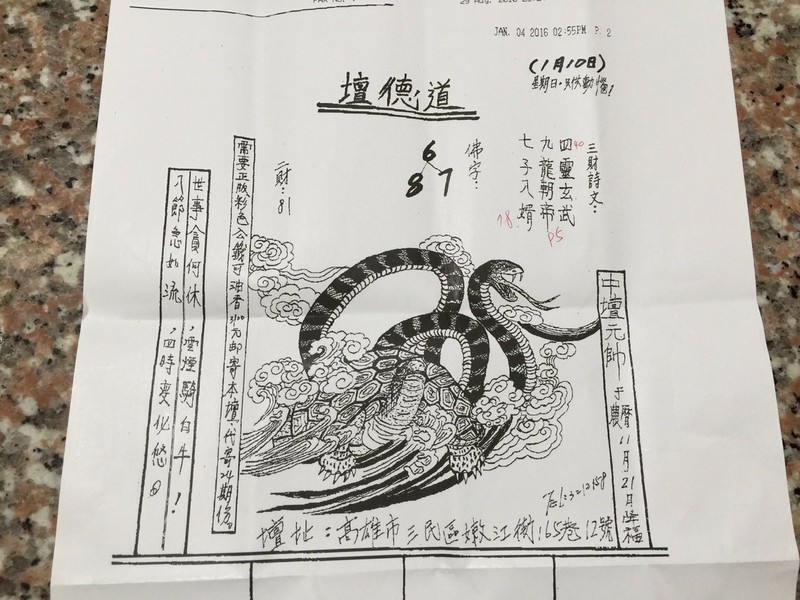 JAN. 04 2016 02:55PM P. 2
(1月10日)
壇德道
三財詩文：
四靈玄武
九龍朝帝
七子八婿
40
18
佛字：
6
8 7
二財：81
中壇元帥于農曆11月21日降福
需要正版彩色公籤可油香300元郵寄本壇代寄24期份
世事貪何休，雲煙騎白牛！
八節急如流，四時變化悠。
TEL:3212158
壇址：高雄市三民區嫩江街165巷12號